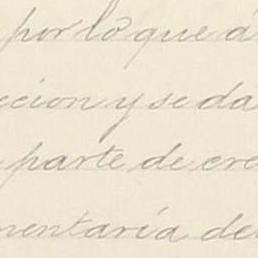 por lo que á
ccion y se da
parte de cre
mentaría de